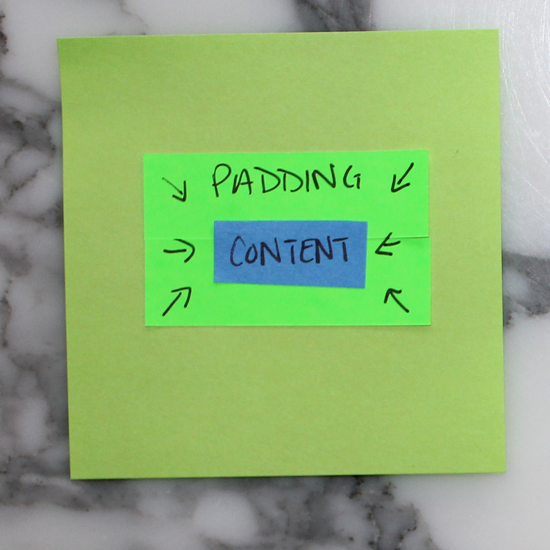 PADDING
CONTENT